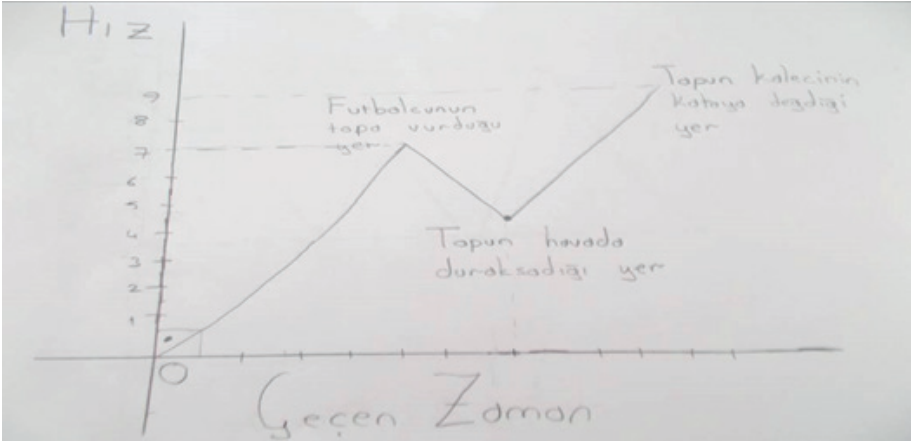 Hız
9
8
7
6
5
4
3
2
1
O
Futbolcunun
topa vurduğu
yer
Topun havada
duraksadığı yer
Topun kalecinin
kafaya değdiği
yer
Geçen Zaman